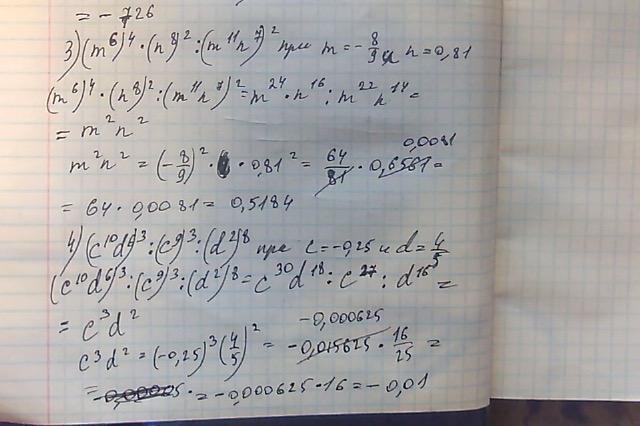 = - 726
3) (m⁶)⁴ · (n⁸)² : (m¹¹n⁷)² при m = -8/9 и n = 0,81
(m⁶)⁴ · (n⁸)² : (m¹¹n⁷)² = m²⁴ · n¹⁶ : m²² n¹⁴ =
= m²n²
0,0081
m²n² = (-8/9)² · 0,81² = 64/81 · 0,6561 =
= 64 · 0,0081 = 0,5184
4) (c¹⁰d⁶)³ : (c⁹)³ : (d²)⁸ при c = -0,25 и d = 4/5
(c¹⁰d⁶)³ : (c⁹)³ : (d²)⁸ = c³⁰d¹⁸ : c²⁷ : d¹⁶ =
= c³d²
-0,000625
c³d² = (-0,25)³ (4/5)² = -0,015625 · 16/25 =
= -0,000625 · 16 = -0,01